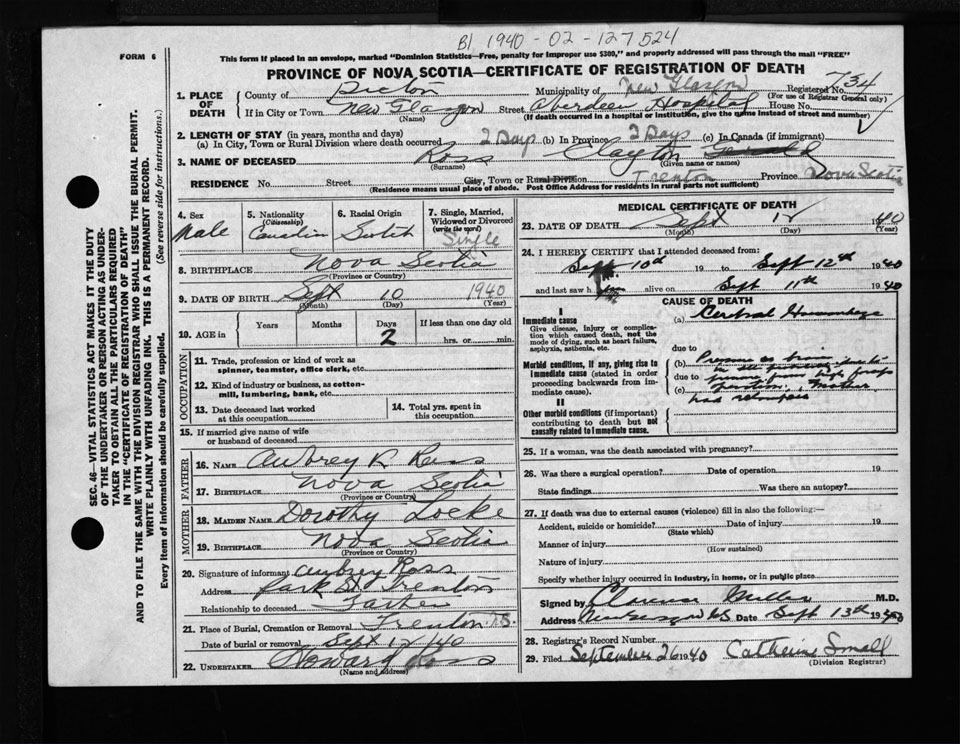 B1 1940-02-127524
FORM 6
This form if placed in an envelope, marked "Dominion Statistics—Free, penalty for improper use $300," and properly addressed will pass through the mail "FREE"
PROVINCE OF NOVA SCOTIA—CERTIFICATE OF REGISTRATION OF DEATH
Registered No. 734
(For use of Registrar General only)
1. PLACE OF DEATH
County of Pictou Municipality of New Glasgow
If in City or Town New Glasgow Street Aberdeen Hospital House No.
(Name) (If death occurred in a hospital or institution, give the name instead of street and number)
2. LENGTH OF STAY (in years, months and days)
(a) In City, Town or Rural Division where death occurred 2 Days (b) In Province 2 Days (c) In Canada (if immigrant)
3. NAME OF DECEASED Ross Clayton Gerald
(Surname) (Given name or names)
RESIDENCE No. Street City, Town or Rural Division Trenton Province Nova Scotia
(Residence means usual place of abode. Post Office Address for residents in rural parts not sufficient)
4. Sex
Male
5. Nationality
(Citizenship)
Canadian
6. Racial Origin
Scotch
7. Single, Married, Widowed or Divorced
(write the word)
Single
8. BIRTHPLACE Nova Scotia
(Province or Country)
9. DATE OF BIRTH Sept 10 1940
(Month) (Day) (Year)
10. AGE in
Years Months Days If less than one day old
2 hrs. or min.
OCCUPATION
11. Trade, profession or kind of work as spinner, teamster, office clerk, etc.
12. Kind of industry or business, as cotton-mill, lumbering, bank, etc.
13. Date deceased last worked at this occupation
14. Total yrs. spent in this occupation
15. If married give name of wife or husband of deceased
FATHER
16. NAME Aubrey R. Ross
17. BIRTHPLACE Nova Scotia
(Province or Country)
MOTHER
18. MAIDEN NAME Dorothy Locke
19. BIRTHPLACE Nova Scotia
(Province or Country)
20. Signature of informant Aubrey Ross
Address Park St Trenton
Relationship to deceased Father
21. Place of Burial, Cremation or Removal Trenton N.S.
Date of burial or removal Sept 12 40
22. UNDERTAKER Howard Ross
(Name and address)
MEDICAL CERTIFICATE OF DEATH
23. DATE OF DEATH Sept 12 1940
(Month) (Day) (Year)
24. I HEREBY CERTIFY that I attended deceased from:
Sept 10th 19 to Sept 12th 1940
and last saw h alive on Sept 11th 1940
CAUSE OF DEATH
I
Immediate cause
Give disease, injury or complication which caused death, not the mode of dying, such as heart failure, asphyxia, asthenia, etc.
(a) Cerebral Hemorrhage
due to
Morbid conditions, if any, giving rise to immediate cause (stated in order proceeding backwards from immediate cause).
(b) Pressure on brain
due to from high forceps
(c) Mother
had
II
Other morbid conditions (if important) contributing to death but not causally related to immediate cause.
25. If a woman, was the death associated with pregnancy?
26. Was there a surgical operation? Date of operation 19
State findings Was there an autopsy?
27. If death was due to external causes (violence) fill in also the following:—
Accident, suicide or homicide? Date of injury 19
(State which)
Manner of injury
(How sustained)
Nature of injury
Specify whether injury occurred in industry, in home, or in public place
Signed by Clarence Miller M.D.
Address New Glasgow N.S. Date Sept 13th 1940
28. Registrar's Record Number
29. Filed September 26 1940 Catherine Small
(Division Registrar)
SEC. 46—VITAL STATISTICS ACT MAKES IT THE DUTY
OF THE UNDERTAKER OR PERSON ACTING AS UNDER-
TAKER TO OBTAIN ALL THE PARTICULARS REQUIRED
IN THE "CERTIFICATE OF REGISTRATION OF DEATH"
AND TO FILE THE SAME WITH THE DIVISION REGISTRAR WHO SHALL ISSUE THE BURIAL PERMIT.
WRITE PLAINLY WITH UNFADING INK. THIS IS A PERMANENT RECORD.
Every item of information should be carefully supplied. (See reverse side for instructions.)